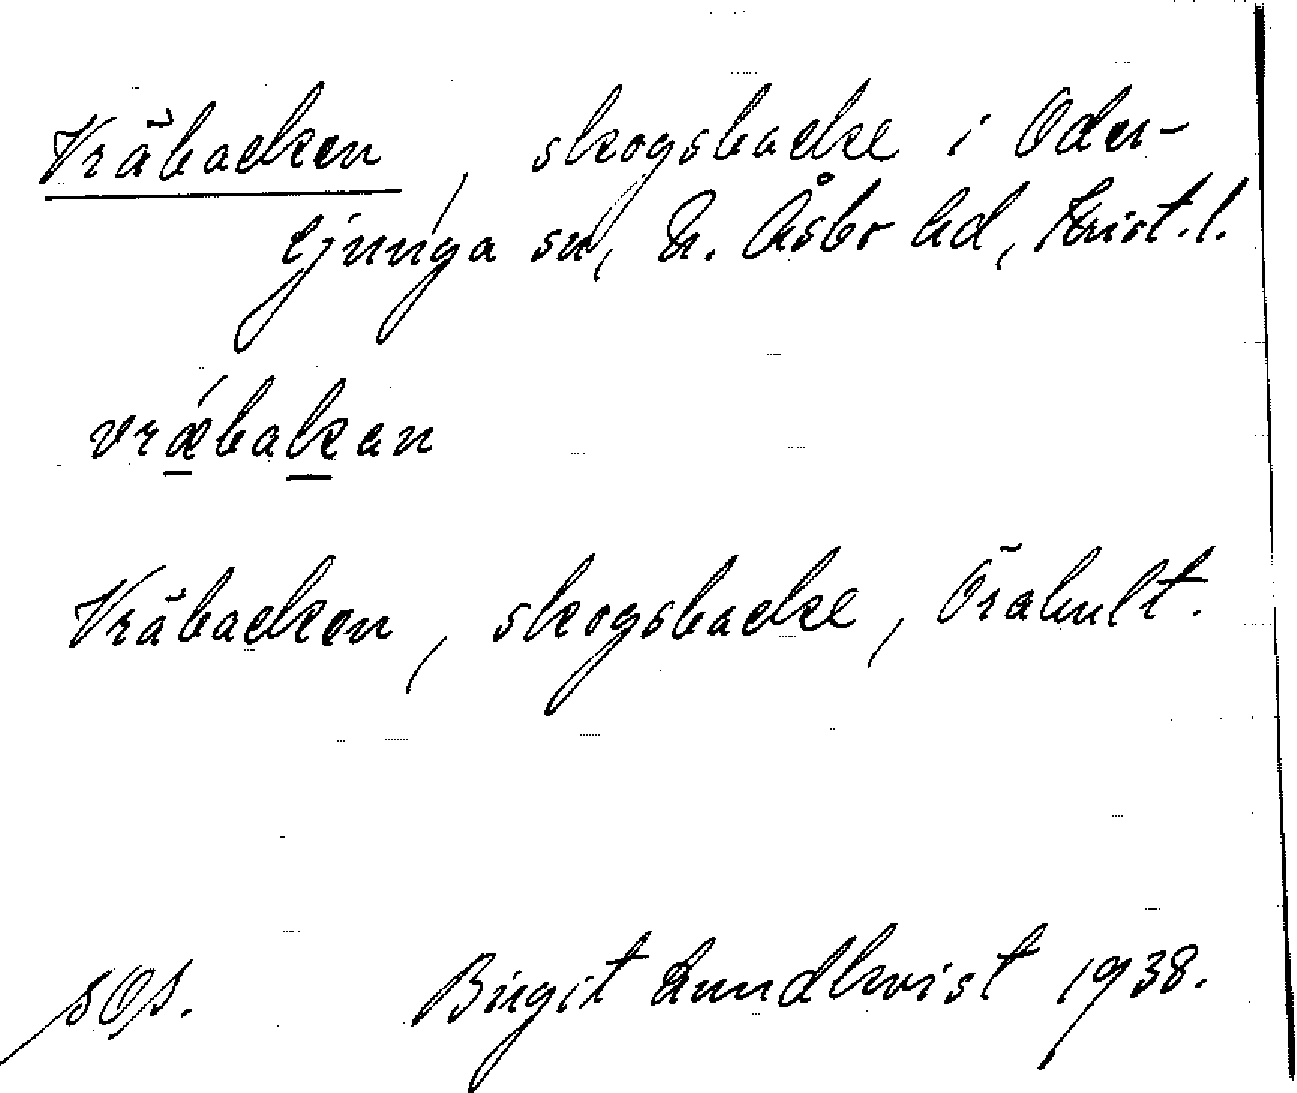 Vräbacken, skogsbacke i Oder-
ljunga sn, N. Åsbo hd, Krist. l.
vrǽbakan
Vräbacken, skogsbacke, Örahult.
Birgit Lundkvist 1938.